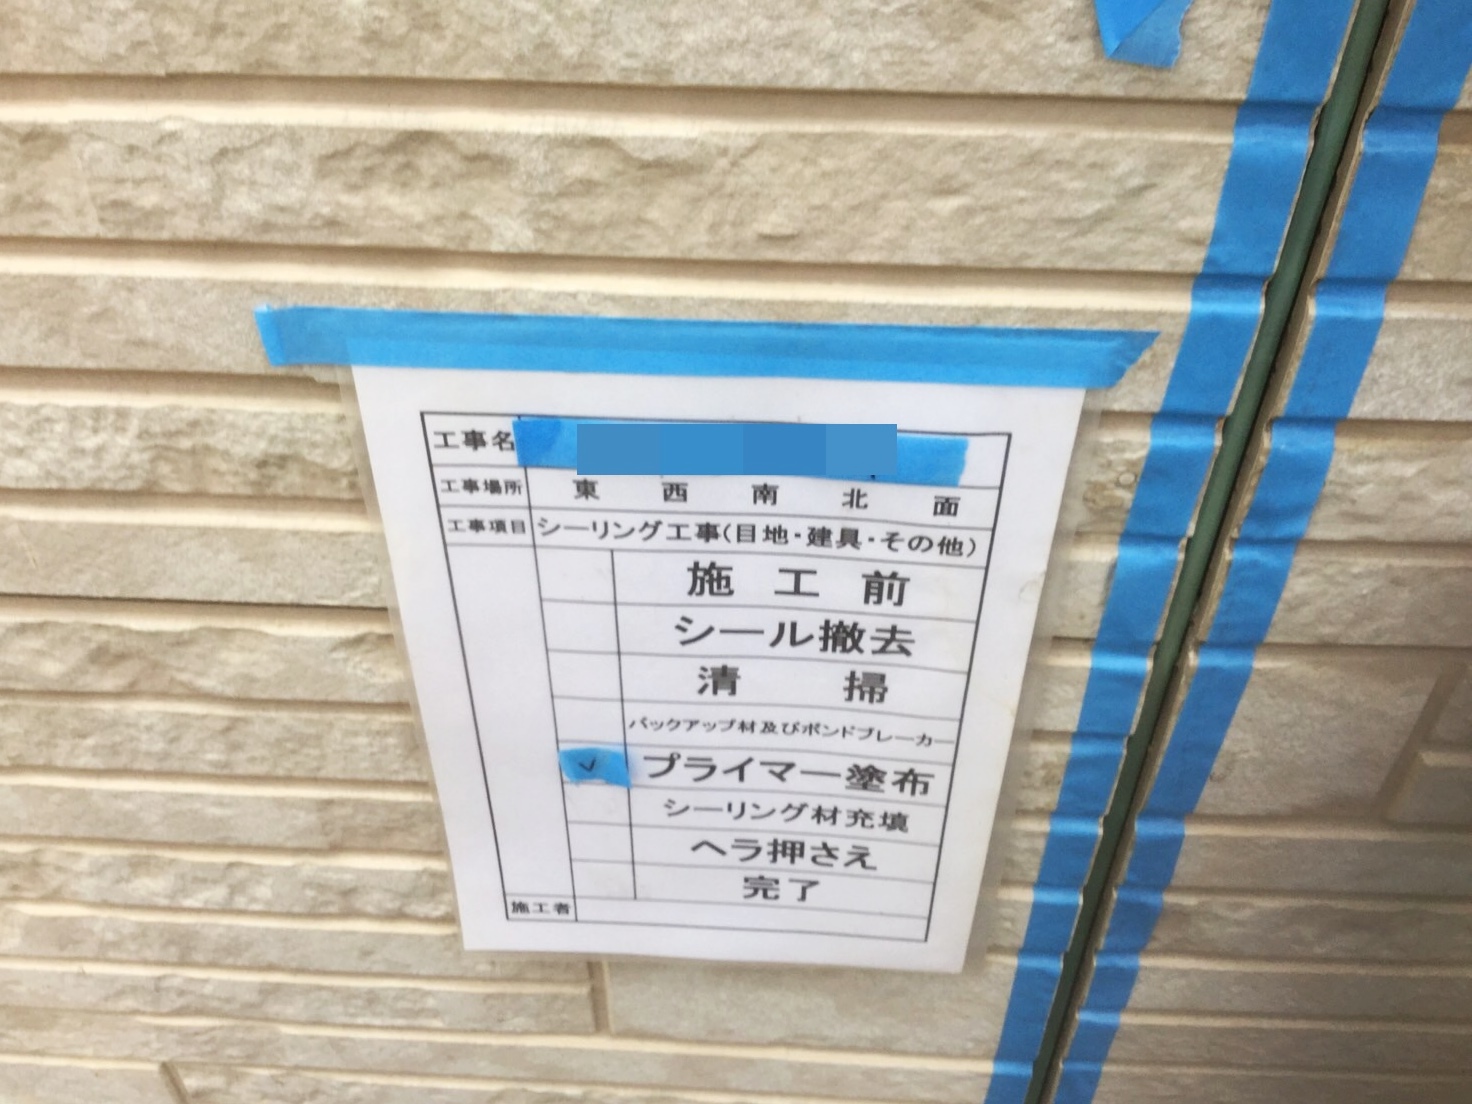 工事名
工事場所 東 西 南 北 面
工事項目 シーリング工事(目地・建具・その他)
施 工 前
シール撤去
清 掃
バックアップ材及びボンドブレーカー
✓ プライマー塗布
シーリング材充填
ヘラ押さえ
完了
施工者